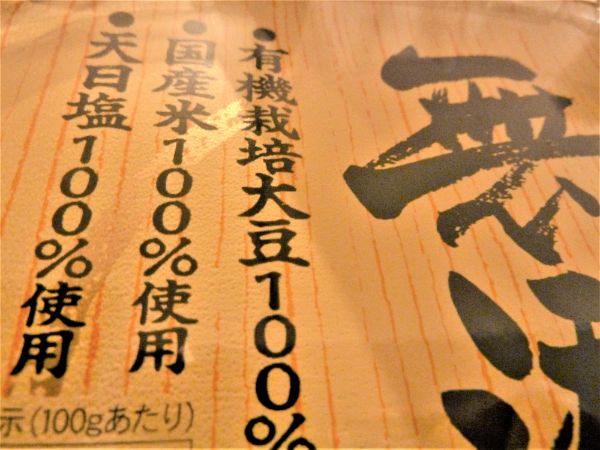 無
●有機栽培大豆100%
●国産米100%使用
●天日塩100%使用
示(100gあたり)